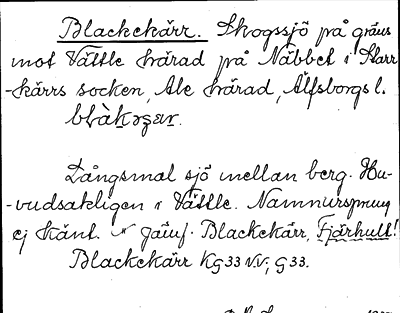 Blackekärr. Skogssjö på gräns
mot Vättle härad på Näbbet i Starr
-kärrs socken, Ale härad, Älfsborgs l.

Långsmal sjö mellan berg. Hu-
-vudsakligen i Vättle. Namnursprung
ej känt. Jämf. Blackekärr, Fjärhult!
Blackekärr KG33 NV; G33.